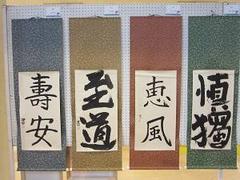 壽安
至道
恵風
慎獨